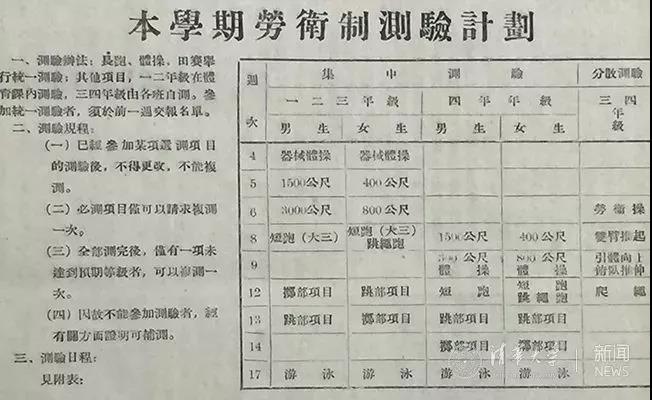 本學期勞衛制測驗計劃
一、測驗辦法：長跑、體操、田賽舉
行統一測驗；其他項目，一二年級在體
育課內測驗，三四年級由各班自測。參
加統一測驗者，須於前一週交報名單。
二、測驗規程：
（一）已經參加某項選測項目
的測驗後，不得更改，不能複
測。
（二）必測項目僅可以請求複測
一次。
（三）全部測完後，僅有一項未
達到預期等級者，可以複測一
次。
（四）因故不能參加測驗者，經
有關方面證明可補測。
三、測驗日程：
見附表：
週次 集中測驗 分散測驗
一二三年級 四年年級 三四年級
男生 女生 男生 女生
4 器械體操 器械體操
5 1500公尺 400公尺
6 3000公尺 800公尺 勞衛操
8 短跑（大三） 短跑（大三）跳繩跑 1500公尺 400公尺 雙臂推起
9 體操 800公尺體操 引體向上俯臥推伸
12 擲部項目 跳部項目 短跑 短跑跳繩跑 爬繩
13 跳部項目 擲部項目 跳部項目 跳部項目
14 擲部項目 擲部項目
17 游泳 游泳 游泳 游泳
清華大学 新闻
NEWS